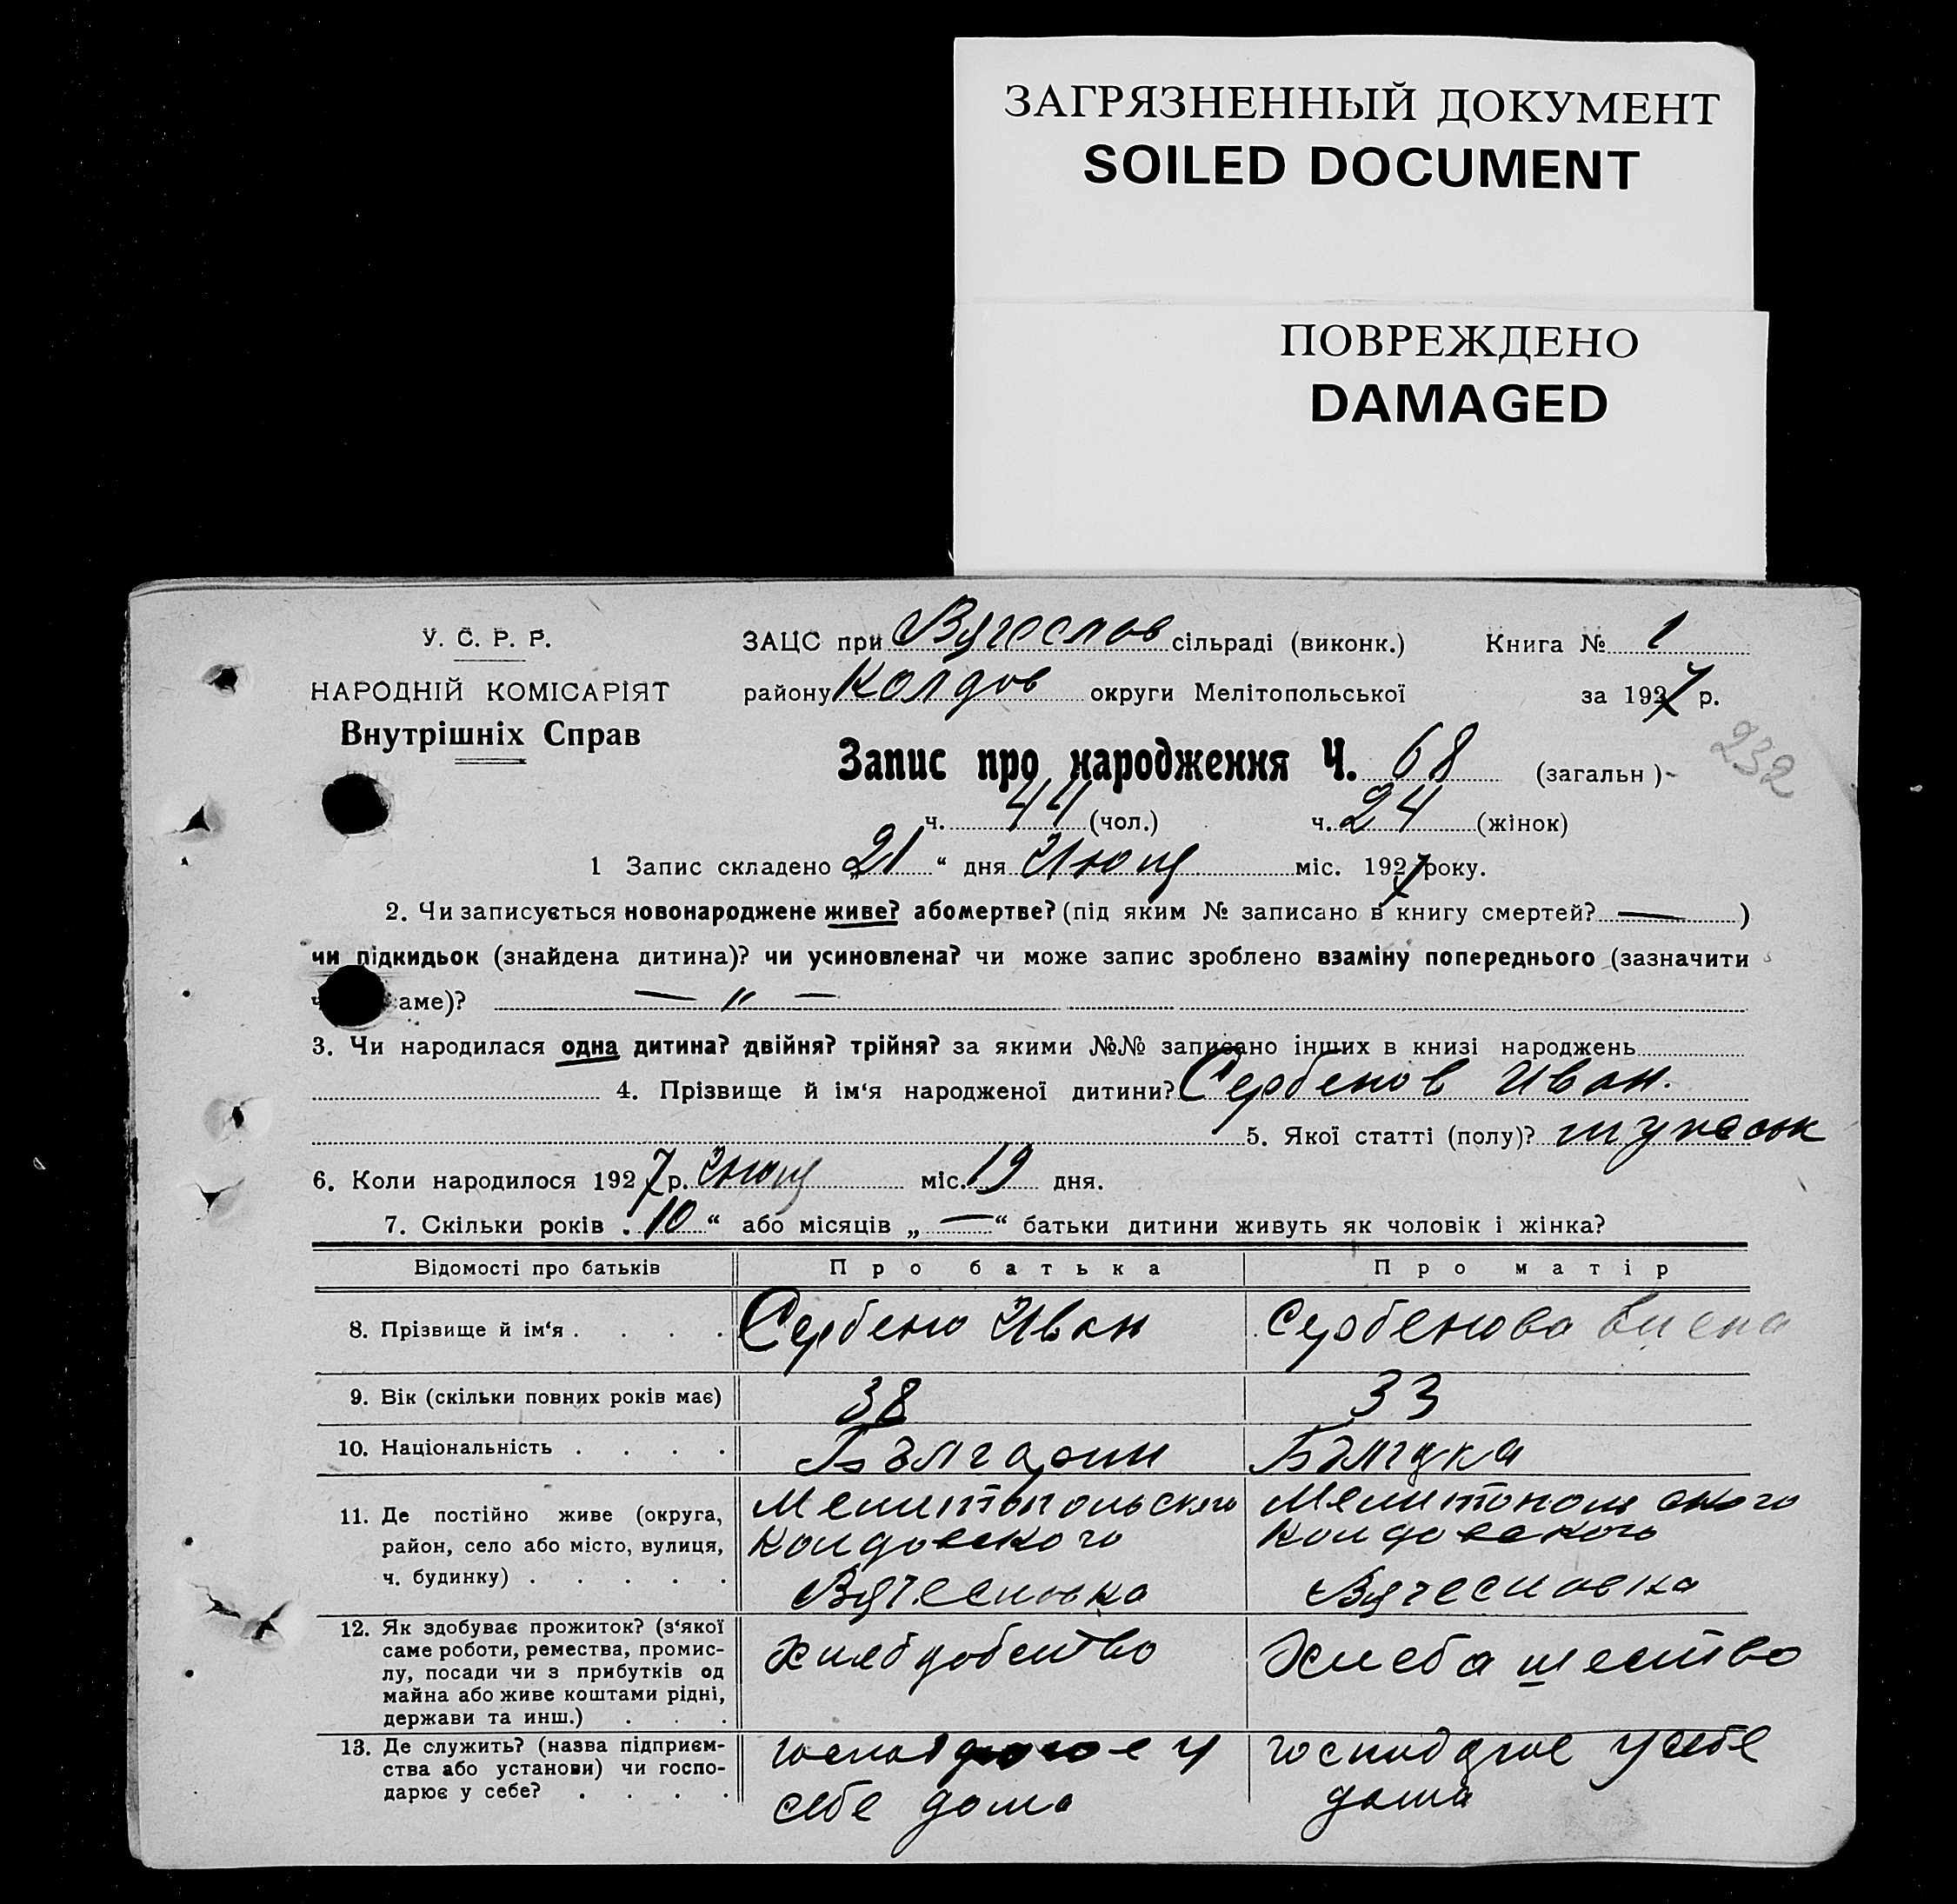 ЗАГРЯЗНЕННЫЙ ДОКУМЕНТ
SOILED DOCUMENT
ПОВРЕЖДЕНО
DAMAGED
У. С. Р. Р.
НАРОДНІЙ КОМІСАРІЯТ
Внутрішніх Справ
ЗАЦС при Вячеслов сільраді (виконк.) Книга № 1
району Колдов округи Мелітопольської за 1927 р.
232
Запис про народження Ч. 68 (загальн)
ч. 44 (чол.) ч. 24 (жінок)
1 Запис складено „21“ дня Июня міс. 1927 року.
2. Чи записується новонароджене живе? або мертве? (під яким № записано в книгу смертей? — )
чи підкидьок (знайдена дитина)? чи усиновлена? чи може запис зроблено взаміну попереднього (зазначити
аме)? — „ —
3. Чи народилася одна дитина? двійня? трійня? за якими №№ записано інших в книзі народжень
4. Прізвище й ім‘я народженої дитини? Сербенов Иван.
5. Якої статті (полу)?
6. Коли народилося 1927 р. Июня міс. 19 дня.
7. Скільки років „10“ або місяців „—“ батьки дитини живуть як чоловік і жінка?
Відомості про батьків Про батька Про матір
8. Прізвище й ім‘я . . . . Сербено Иван Сербенова
9. Вік (скільки повних років має) 38 33
10. Національність . . . . Българин Българка
11. Де постійно живе (округа, Мелитопольского Мелитопольского
район, село або місто, вулиця, Колдовского Колдовского
ч. будинку) . . . . . Вячесловка Вячесловка
12. Як здобуває прожиток? (з‘якої
саме роботи, ремества, промис-
лу, посади чи з прибутків од
майна або живе коштами рідні,
держави та инш.) . . .
13. Де служить? (назва підприєм-
ства або установи) чи госпо- у себе
дарює у себе? . . . . себе дома дома